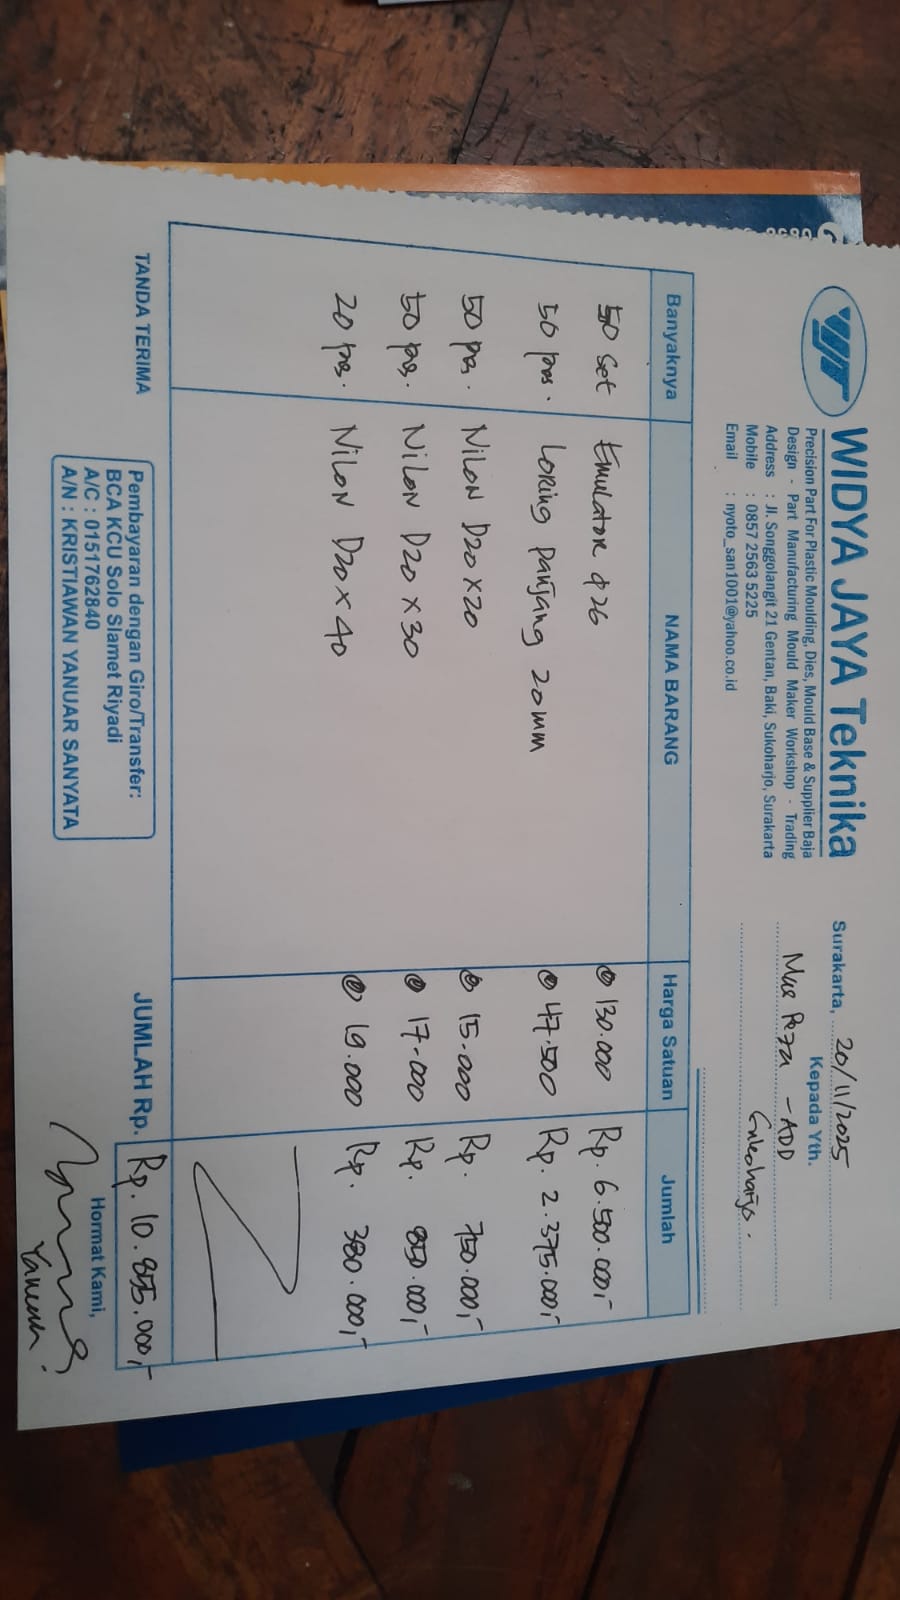 WJT
WIDYA JAYA Teknika
Precision Part For Plastic Moulding, Dies, Mould Base & Supplier Baja
Design - Part Manufacturing Mould Maker Workshop - Trading
Address : Jl. Songgolangit 21 Gentan, Baki, Sukoharjo, Surakarta
Mobile : 0857 2563 5225
Email : nyoto_san1001@yahoo.co.id
Surakarta, 20/11/2025
Kepada Yth.
- ADD
Banyaknya NAMA BARANG Harga Satuan Jumlah
50 set Emulator φ26 @ 130.000 Rp. 6.500.000,-
50 pcs. Loring panjang 20mm @ 47.500 Rp. 2.375.000,-
50 pcs. Nilon D20 x 20 @ 15.000 Rp. 750.000,-
50 pcs. Nilon D20 x 30 @ 17.000 Rp. 850.000,-
20 pcs. Nilon D20 x 40 @ 19.000 Rp. 380.000,-
JUMLAH Rp. Rp. 10.855.000,-
TANDA TERIMA
Pembayaran dengan Giro/Transfer:
BCA KCU Solo Slamet Riyadi
A/C : 0151762840
A/N : KRISTIAWAN YANUAR SANYATA
Hormat Kami,